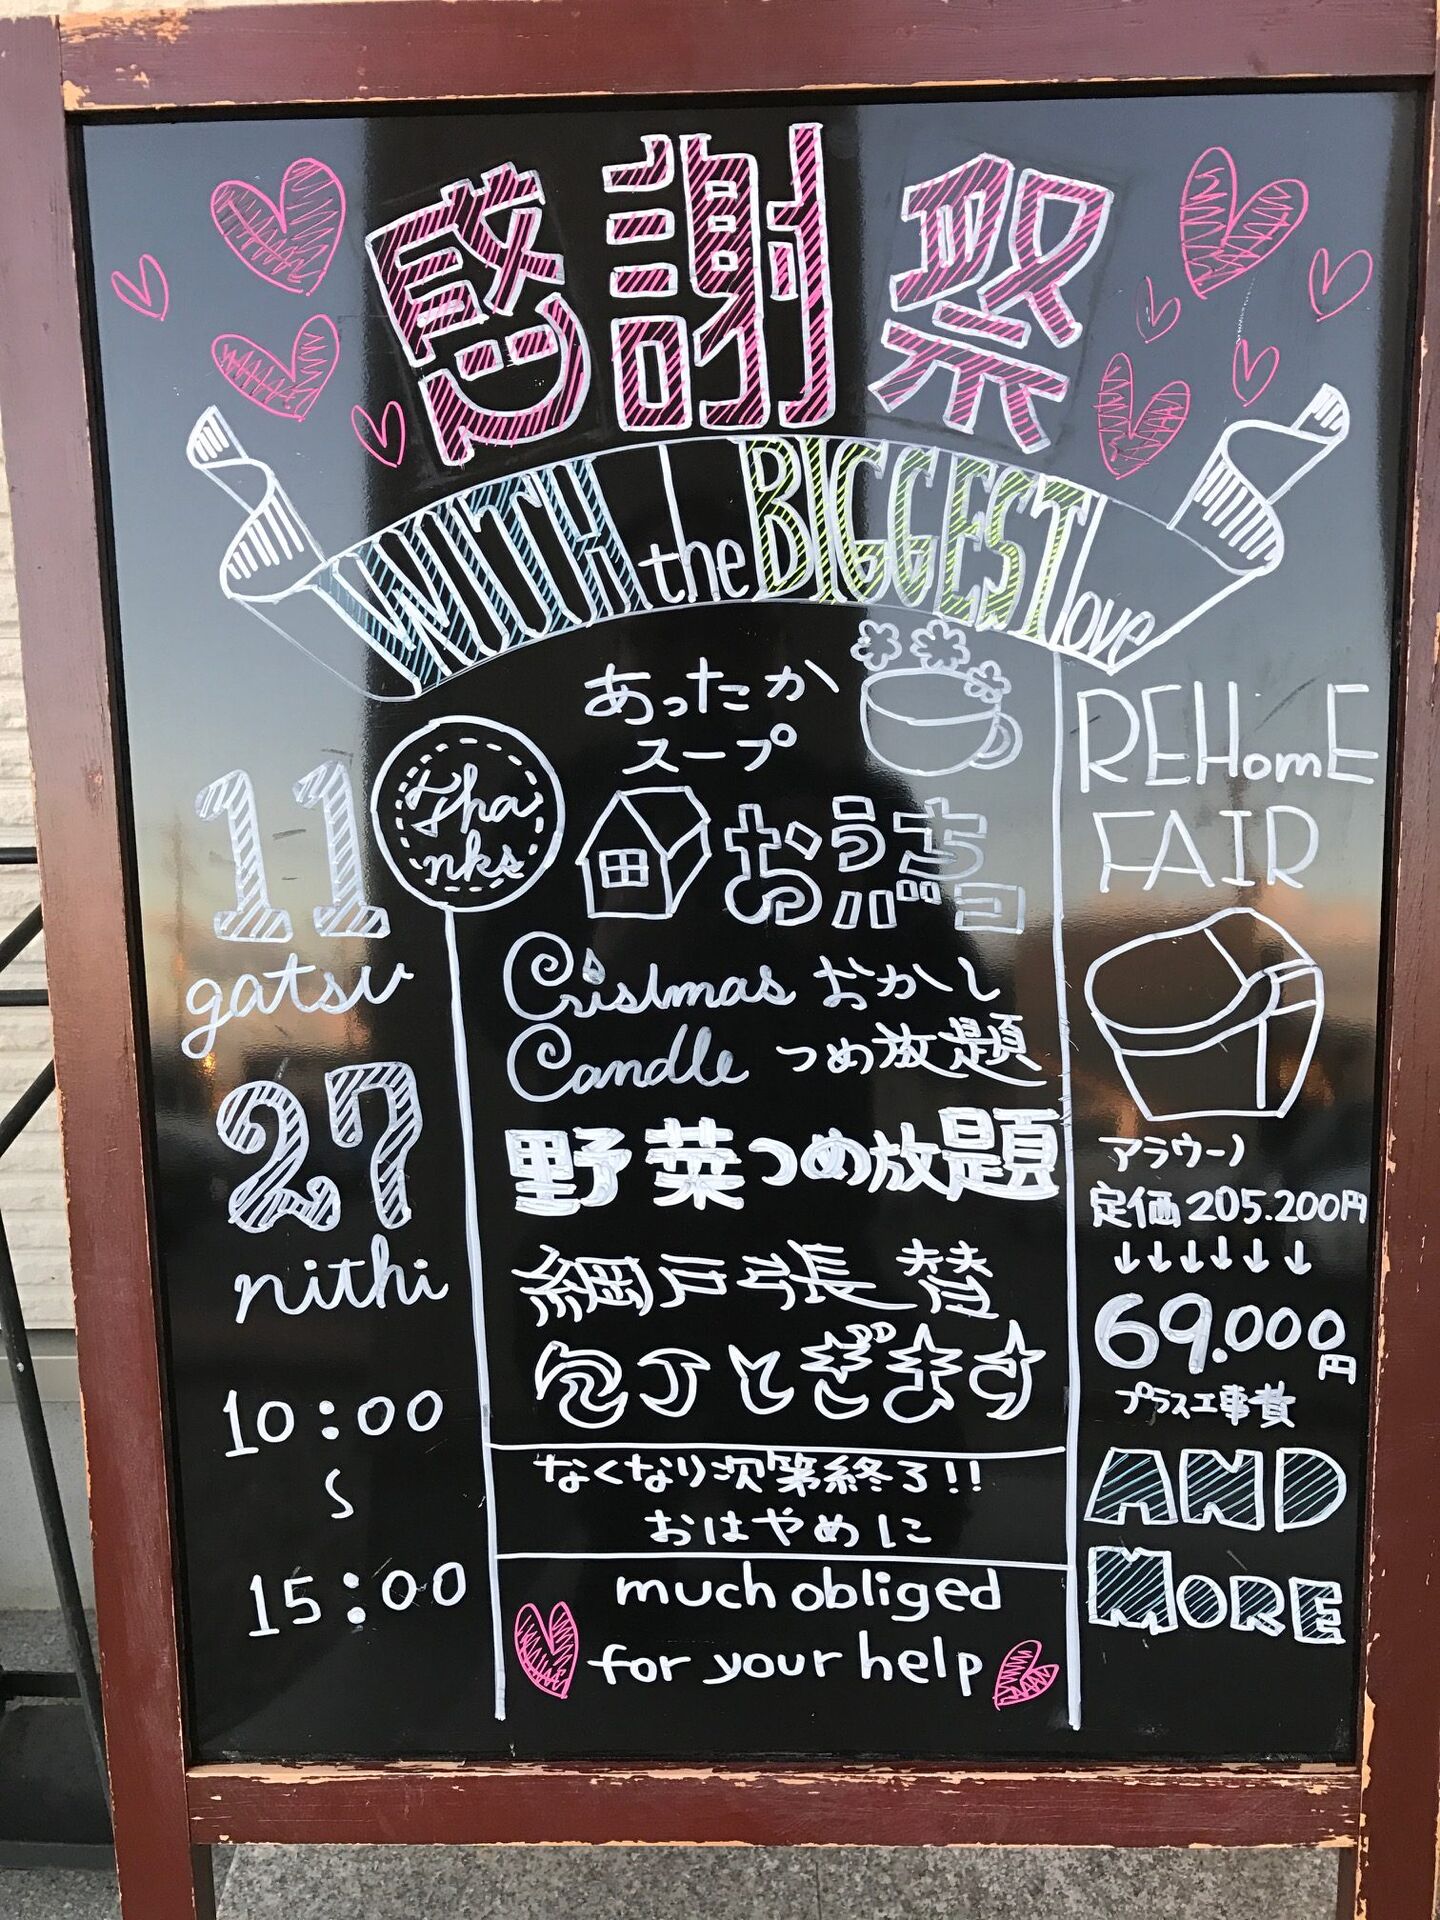 感謝祭
WITH the BIGGEST love
11
gatsu
27
nithi
10:00
〜
15:00
Thanks
あったか
スープ
おうち
Cristmas
Candle
おかし
つめ放題
野菜つめ放題
網戸張替
包丁とぎます
なくなり次第終了!!
おはやめに
much obliged
for your help
REHomE
FAIR
アラウーノ
定価205.200円
↓↓↓↓↓↓
69.000円
プラス工事費
AND
MORE